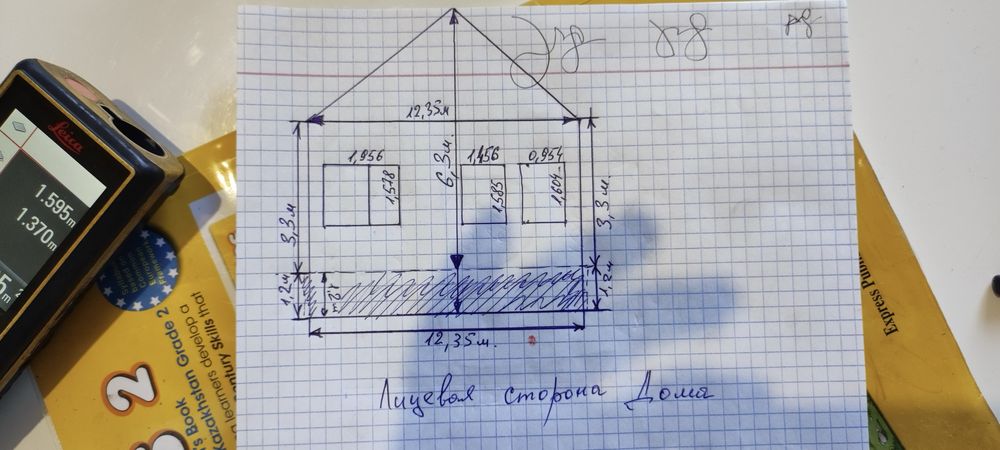 Leica
1.595m
1.370m
12,35м
3,3м
6,3м.
3,3м.
1,956
1,538
1,456
1,585
0,954
1,604
1,2м
1,2м
1,2м
12,35м.
Лицевая сторона Дома
2
Book
Kazakhstan Grade 2
learners develop a
century skills that
Express Publ